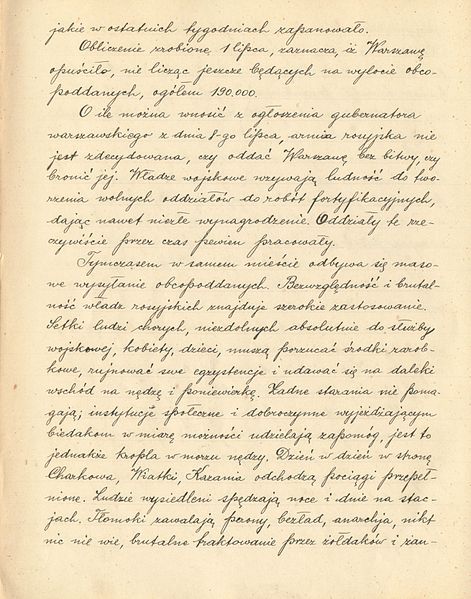 jakie w ostatnich tygodniach zapanowało.
Obliczenie zrobione 1 lipca, zaznacza, iż Warszawę
opuściło, nie licząc jeszcze będących na wylocie obco-
poddanych, ogółem 190.000.
O ile można wnosić z ogłoszenia gubernatora
warszawskiego z dnia 8-go lipca, armia rosyjska nie
jest zdecydowana, czy oddać Warszawę bez bitwy, czy
bronić jej. Władze wojskowe wzywają ludność do two-
rzenia wolnych oddziałów do robót fortyfikacyjnych,
dając nawet niezłe wynagrodzenie. Oddziały te rze-
czywiście przez czas pewien pracowały.
Tymczasem w samem mieście odbywa się maso-
we wysyłanie obcopoddanych. Bezwzględność i brutal-
ność władz rosyjskich znajduje szerokie zastosowanie.
Setki ludzi chorych, niezdolnych absolutnie do służby
wojskowej, kobiety, dzieci, muszą porzucać środki zarob-
kowe, rujnować swe egzystencje i udawać się na daleki
wschód na nędzę i poniewierkę. Żadne starania nie poma-
gają; instytucje społeczne i dobroczynne wyjeżdżającym
biedakom w miarę możności udzielają zapomóg, jest to
jednakże kropla w morzu nędzy. Dzień w dzień w stronę
Charkowa, Wiatki, Kazania odchodzą pociągi przepeł-
nione. Ludzie wysiedleni spędzają noce i dnie na stac-
jach. Tłomoki zawalają perony bezład, anarchja, nikt
nic nie wie, brutalne traktowanie przez żołdaków i żan-